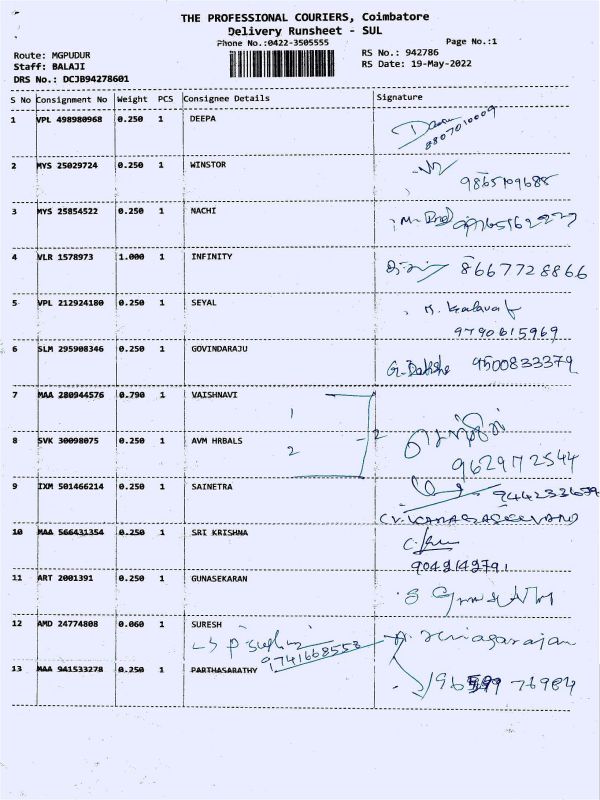 THE PROFESSIONAL COURIERS, Coimbatore
Delivery Runsheet - SUL
Phone No.:0422-3505555
Page No.:1
Route: MGPUDUR
RS No.: 942786
Staff: BALAJI
RS Date: 19-May-2022
DRS No.: DCJB94278601
S No Consignment No Weight PCS Consignee Details Signature
1 VPL 498980968 0.250 1 DEEPA
8807010009
2 MYS 25029724 0.250 1 WINSTOR
9865109688
3 MYS 25854522 0.250 1 NACHI
4 VLR 1578973 1.000 1 INFINITY 8667728866
5 VPL 212924180 0.250 1 SEYAL
9790615969
6 SLM 295908346 0.250 1 GOVINDARAJU
9500833379
7 MAA 280944576 0.790 1 VAISHNAVI
1
8 SVK 30098075 0.250 1 AVM HRBALS 2
2
செந்தில்
9629172544
9 IXM 501466214 0.250 1 SAINETRA
10 MAA 566431354 0.250 1 SRI KRISHNA
9042142791
11 ART 2001391 0.250 1 GUNASEKARAN
12 AMD 24774808 0.060 1 SURESH
9741668558
13 MAA 941533278 0.250 1 PARTHASARATHY